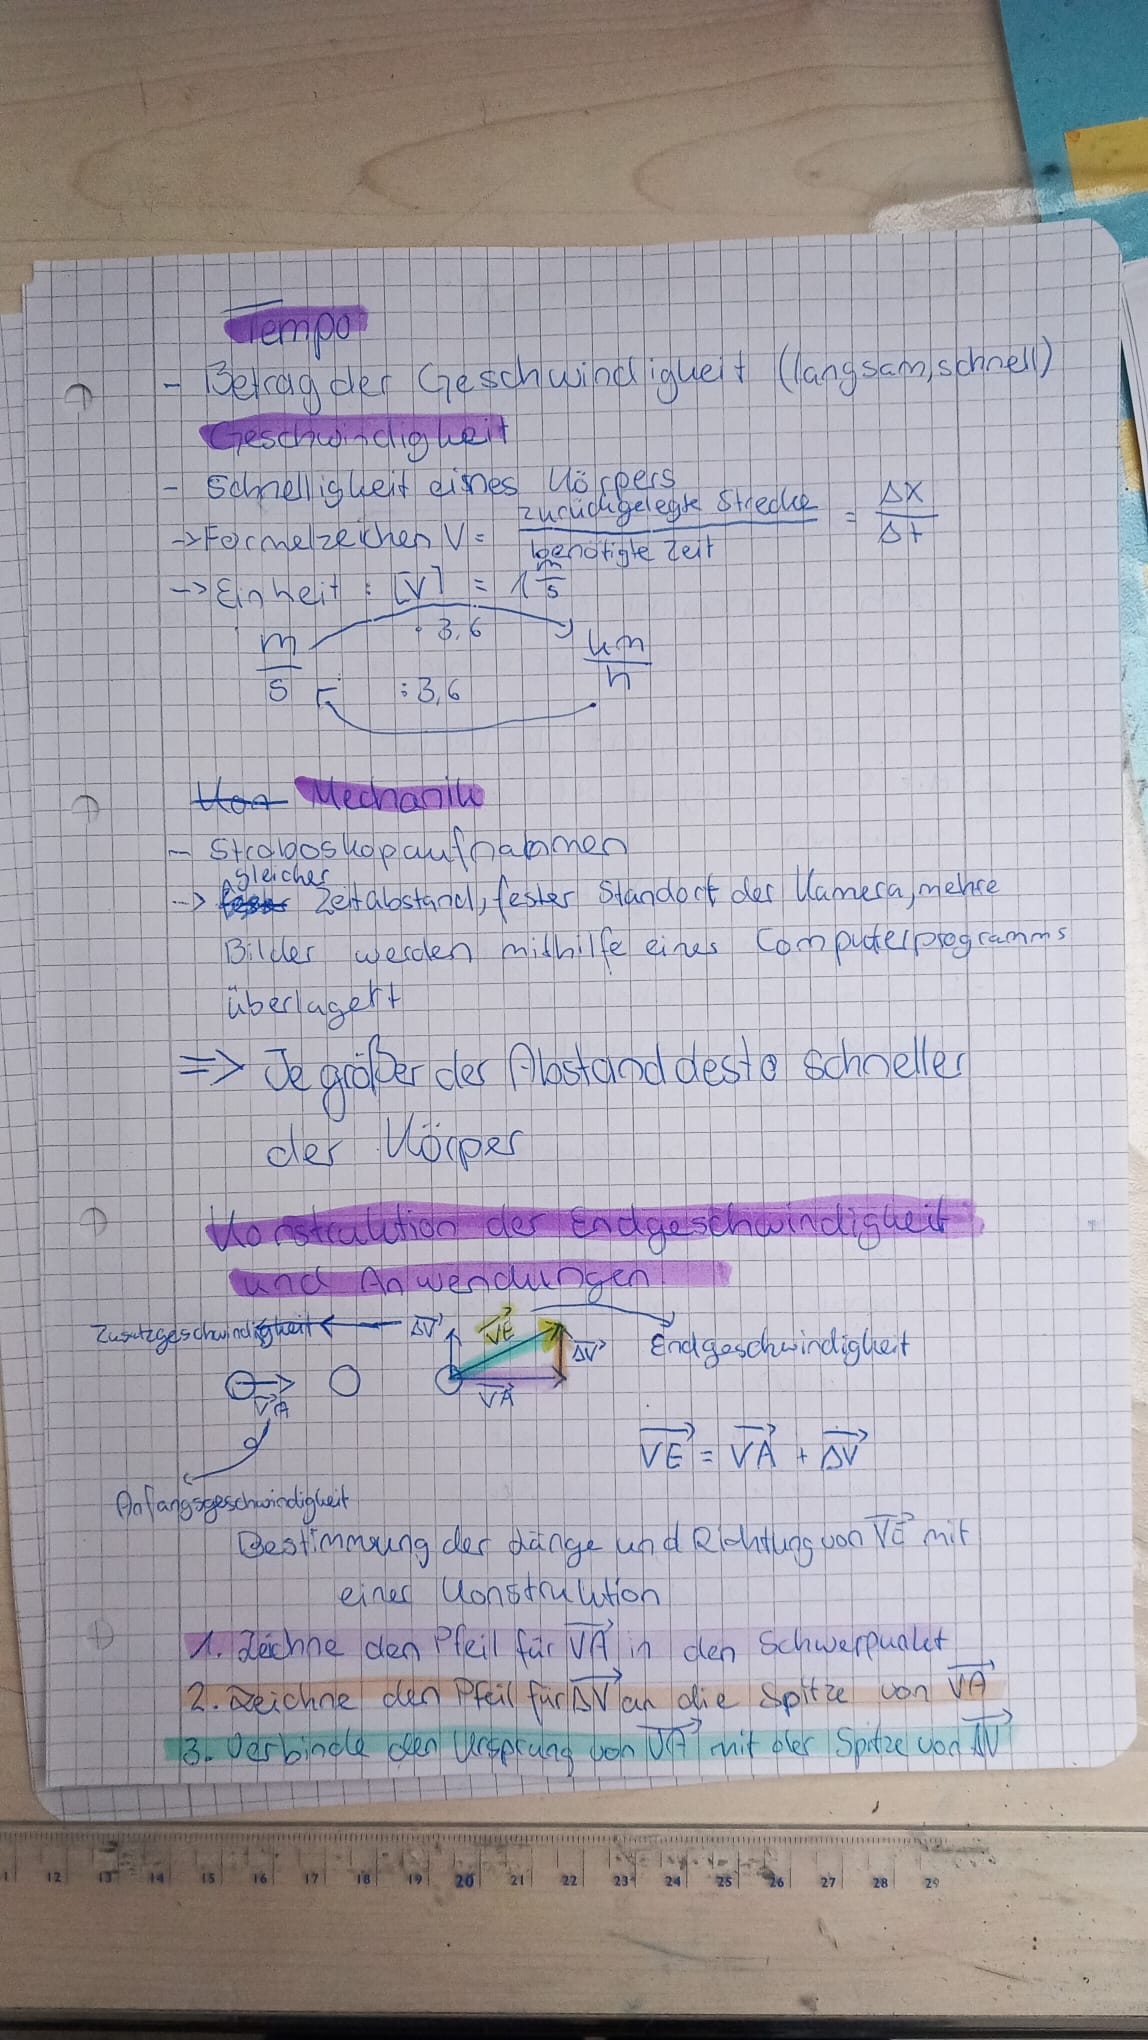 Tempo
- Betrag der Geschwindigkeit (langsam, schnell)
Geschwindigkeit
- Schnelligkeit eines Körpers
-> Formelzeichen V = zurückgelegte Strecke / benötigte Zeit = ΔX / Δt
-> Einheit : [V] = 1 m/s
m/s · 3,6 km/h
: 3,6
Mechanik
- Stroboskopaufnahmen
gleicher
-> Zeitabstand, fester Standort der Kamera, mehre
Bilder werden mithilfe eines Computerprogramms
überlagert
=> Je größer der Abstand desto schneller
der Körper
Konstruktion der Endgeschwindigkeit
und Anwendungen
Zusatzgeschwindigkeit ← ΔV VE
ΔV Endgeschwindigkeit
VA VA
VE = VA + ΔV
Anfangsgeschwindigkeit
Bestimmung der Länge und Richtung von VE mit
einer Konstruktion
1. Zeichne den Pfeil für VA in den Schwerpunkt
2. Zeichne den Pfeil für ΔV an die Spitze von VA
3. Verbinde den Ursprung von VA mit der Spitze von ΔV
11 12 13 14 15 16 17 18 19 20 21 22 23 24 25 26 27 28 29